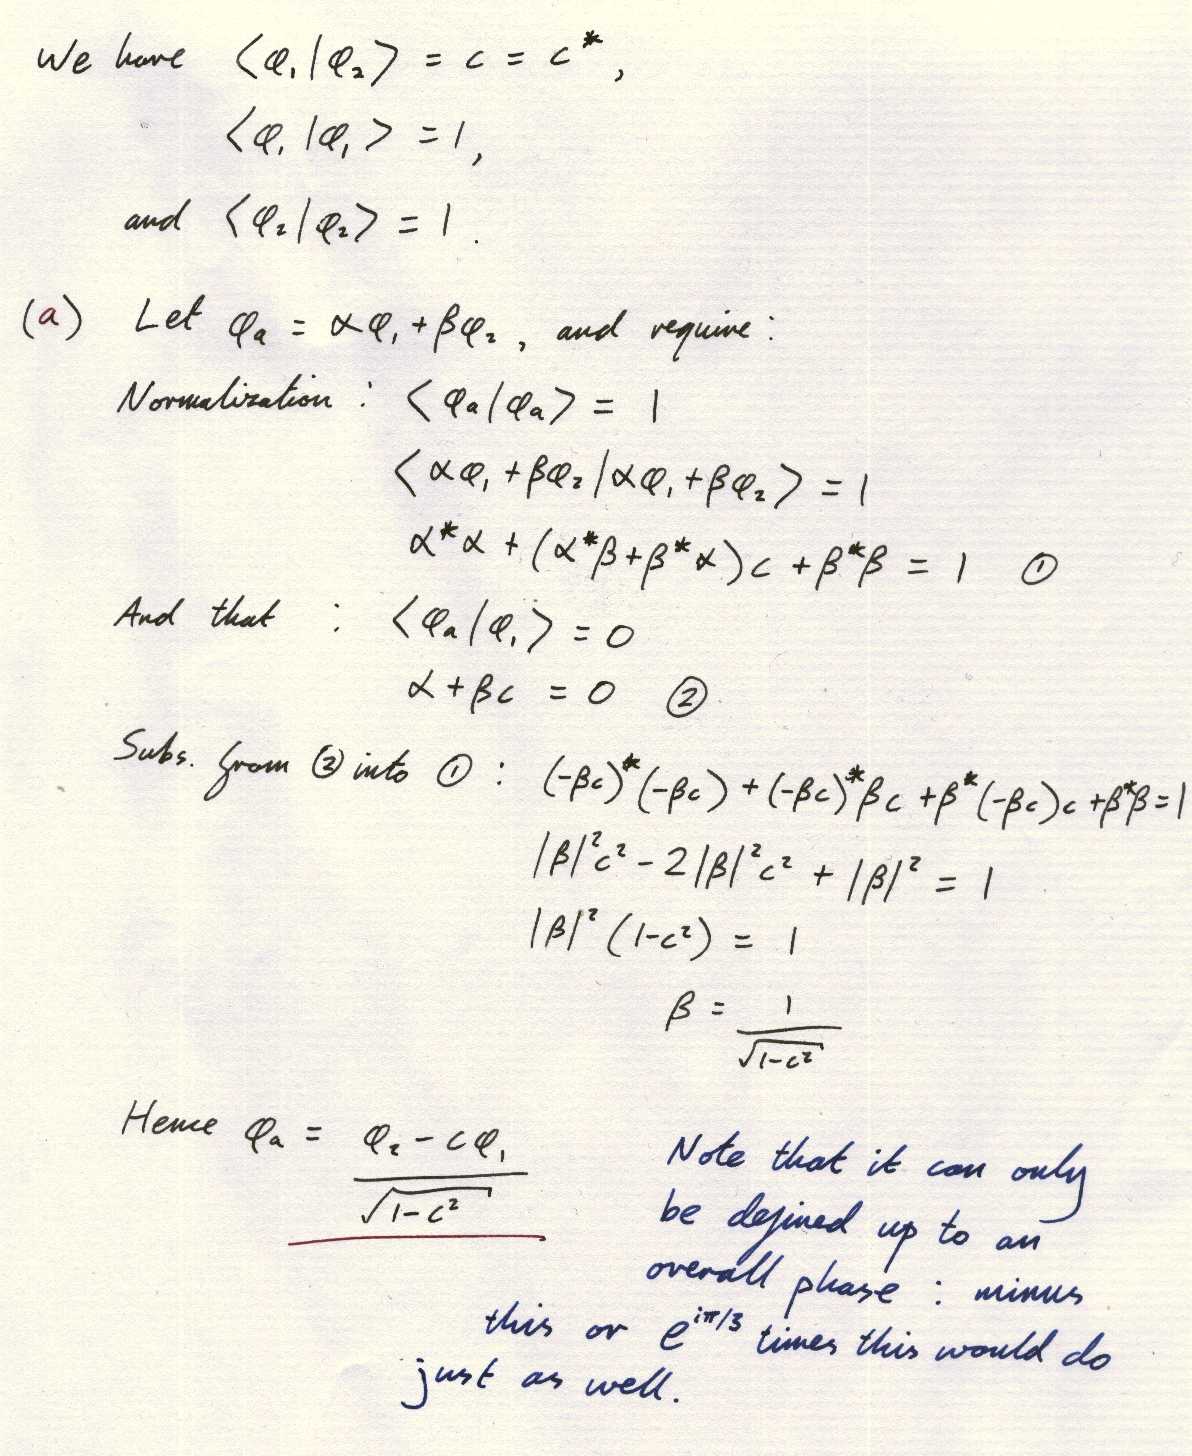 We have ⟨φ₁|φ₂⟩ = c = c*,
⟨φ₁|φ₁⟩ = 1,
and ⟨φ₂|φ₂⟩ = 1.
(a) Let φₐ = αφ₁ + βφ₂, and require:
Normalization : ⟨φₐ|φₐ⟩ = 1
⟨αφ₁ + βφ₂|αφ₁ + βφ₂⟩ = 1
α*α + (α*β + β*α)c + β*β = 1 ①
And that : ⟨φₐ|φ₁⟩ = 0
α + βc = 0 ②
Subs. from ② into ① : (-βc)*(-βc) + (-βc)*βc + β*(-βc)c + β*β = 1
|β|²c² - 2|β|²c² + |β|² = 1
|β|²(1-c²) = 1
β = 1/√(1-c²)
Hence φₐ = (φ₂ - cφ₁)/√(1-c²)
Note that it can only
be defined up to an
overall phase : minus
this or e^{iπ/3} times this would do
just as well.